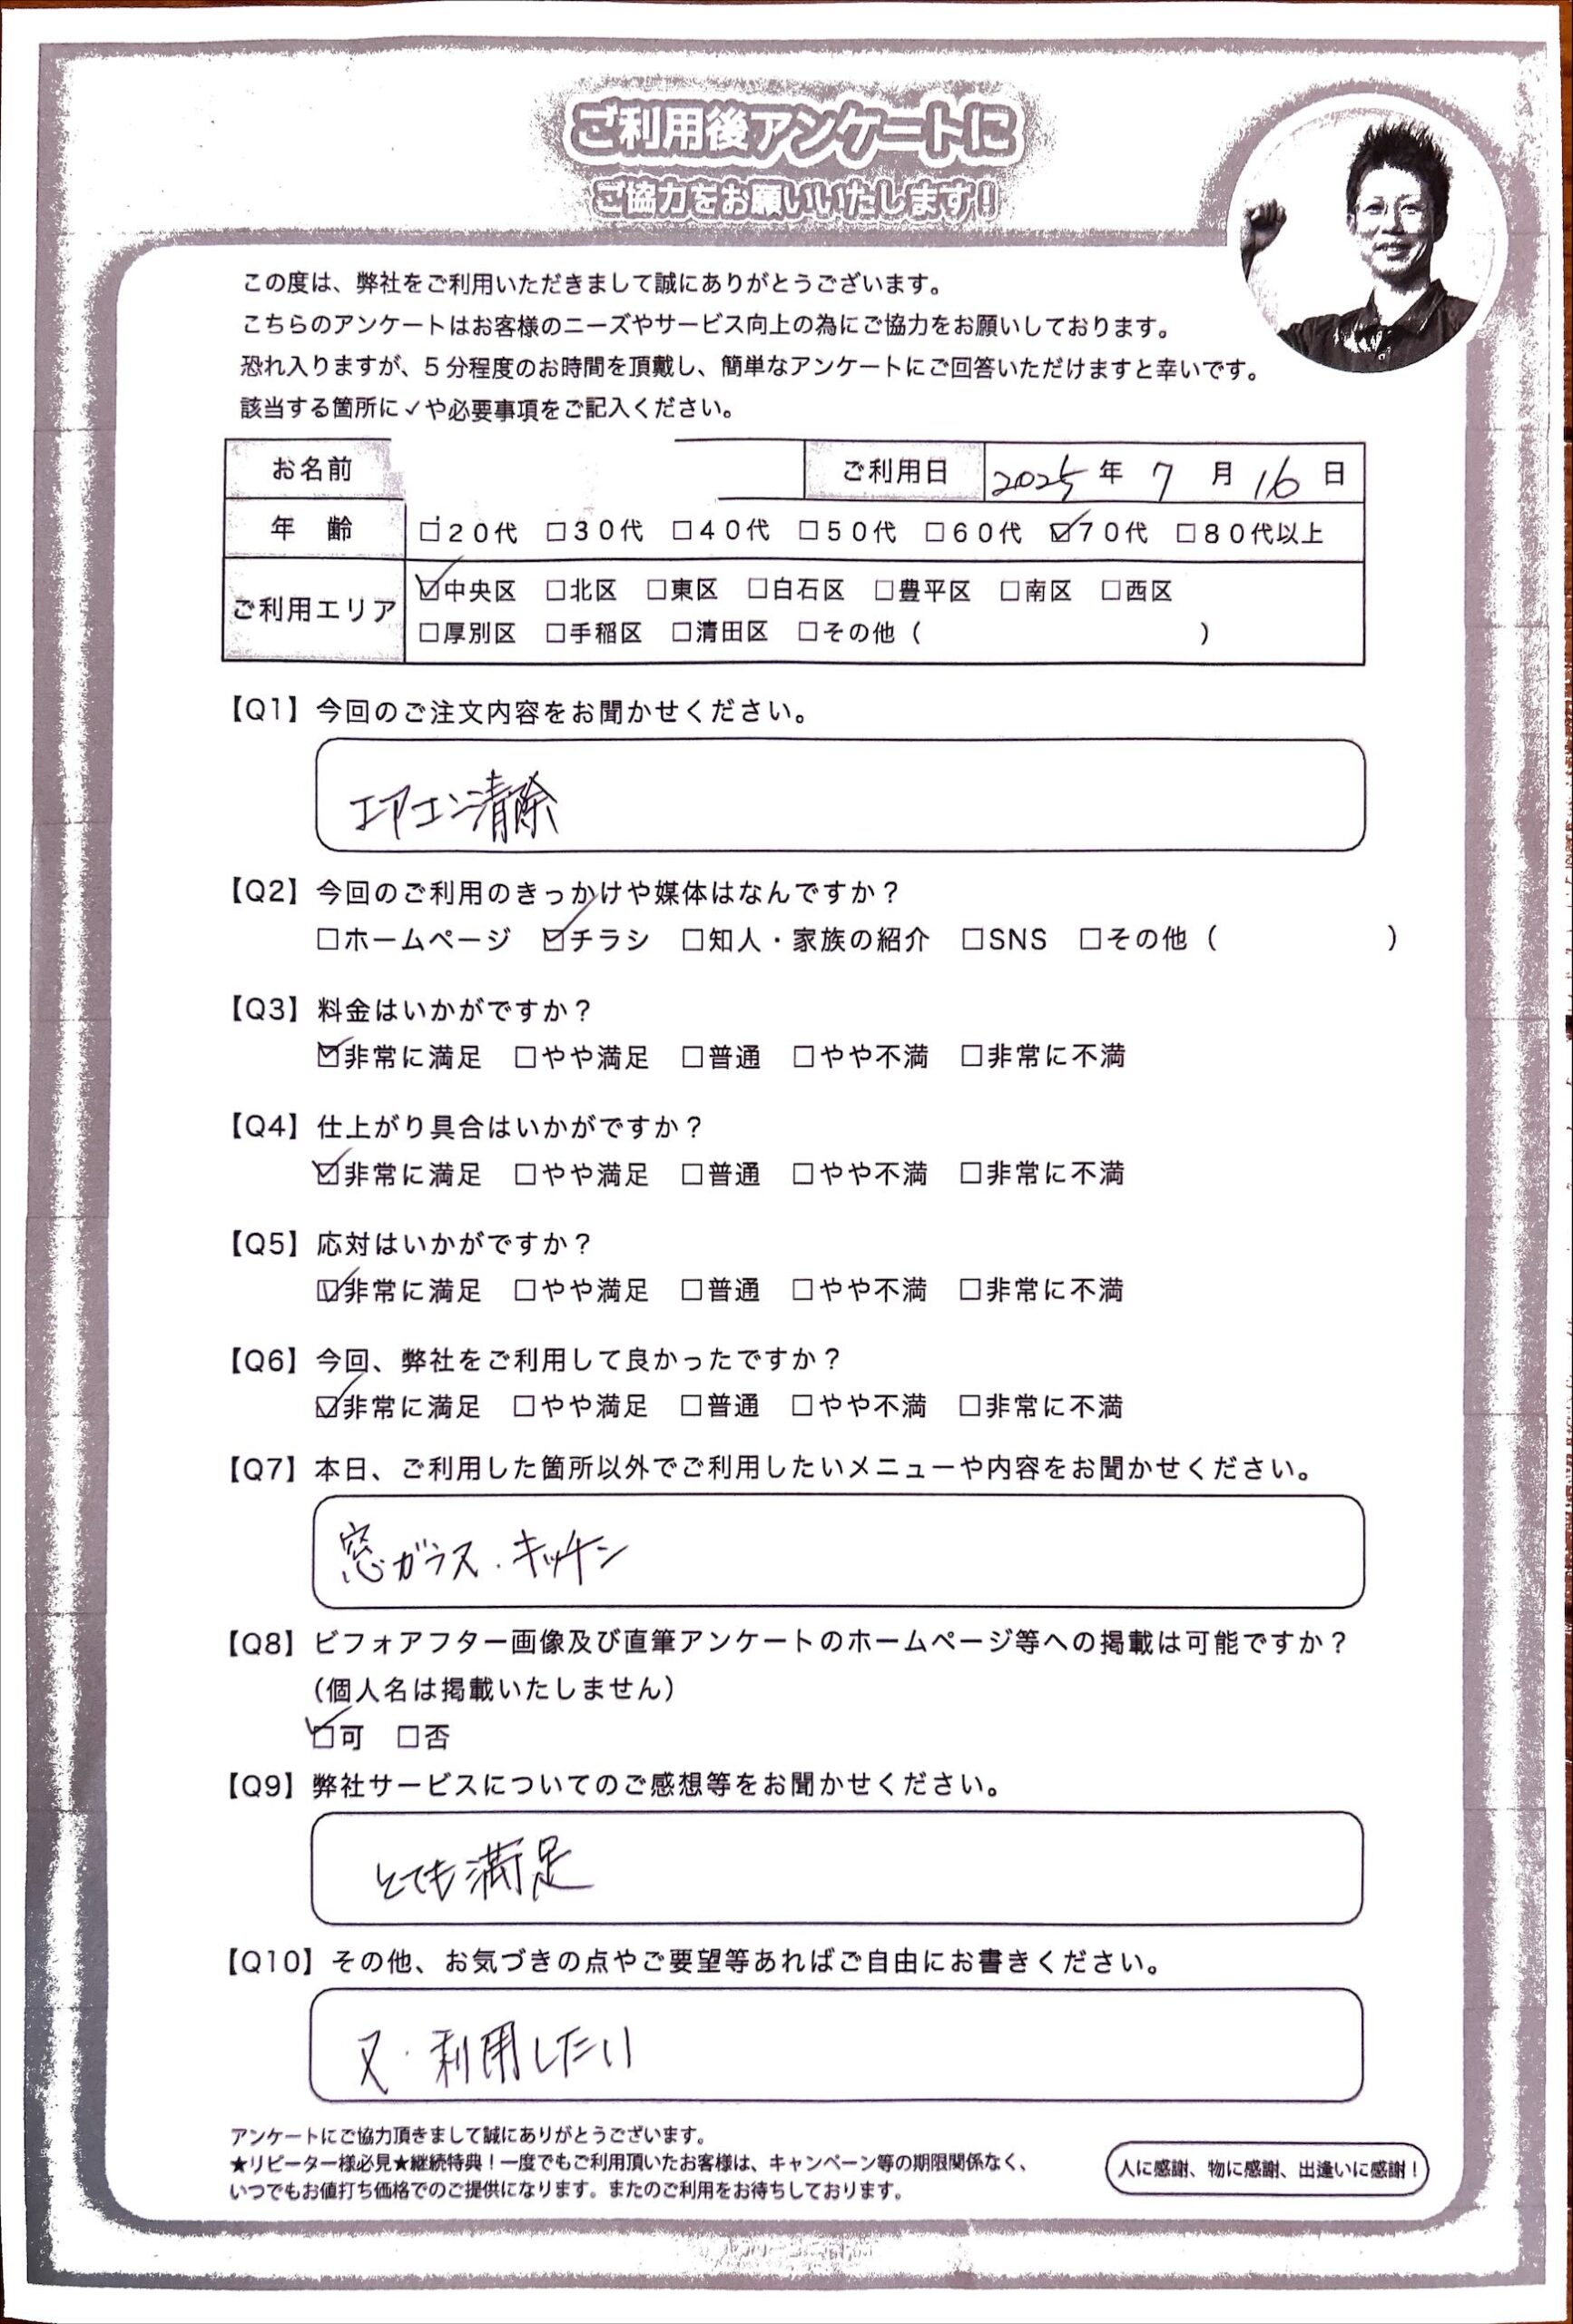 ご利用後アンケートに
ご協力をお願いいたします!
この度は、弊社をご利用いただきまして誠にありがとうございます。
こちらのアンケートはお客様のニーズやサービス向上の為にご協力をお願いしております。
恐れ入りますが、5分程度のお時間を頂戴し、簡単なアンケートにご回答いただけますと幸いです。
該当する箇所に✓や必要事項をご記入ください。
お名前 ご利用日 2025年 7月 16日
年 齢 □20代 □30代 □40代 □50代 □60代 ☑70代 □80代以上
ご利用エリア ☑中央区 □北区 □東区 □白石区 □豊平区 □南区 □西区
□厚別区 □手稲区 □清田区 □その他( )
【Q1】今回のご注文内容をお聞かせください。
エアコン清掃
【Q2】今回のご利用のきっかけや媒体はなんですか?
□ホームページ ☑チラシ □知人・家族の紹介 □SNS □その他( )
【Q3】料金はいかがですか?
☑非常に満足 □やや満足 □普通 □やや不満 □非常に不満
【Q4】仕上がり具合はいかがですか?
☑非常に満足 □やや満足 □普通 □やや不満 □非常に不満
【Q5】応対はいかがですか?
☑非常に満足 □やや満足 □普通 □やや不満 □非常に不満
【Q6】今回、弊社をご利用して良かったですか?
☑非常に満足 □やや満足 □普通 □やや不満 □非常に不満
【Q7】本日、ご利用した箇所以外でご利用したいメニューや内容をお聞かせください。
窓ガラス・キッチン
【Q8】ビフォアフター画像及び直筆アンケートのホームページ等への掲載は可能ですか?
(個人名は掲載いたしません)
☑可 □否
【Q9】弊社サービスについてのご感想等をお聞かせください。
とても満足
【Q10】その他、お気づきの点やご要望等あればご自由にお書きください。
又・利用したい
アンケートにご協力頂きまして誠にありがとうございます。
★リピーター様必見★継続特典!一度でもご利用頂いたお客様は、キャンペーン等の期限関係なく、
いつでもお値打ち価格でのご提供になります。またのご利用をお待ちしております。
人に感謝、物に感謝、出逢いに感謝!